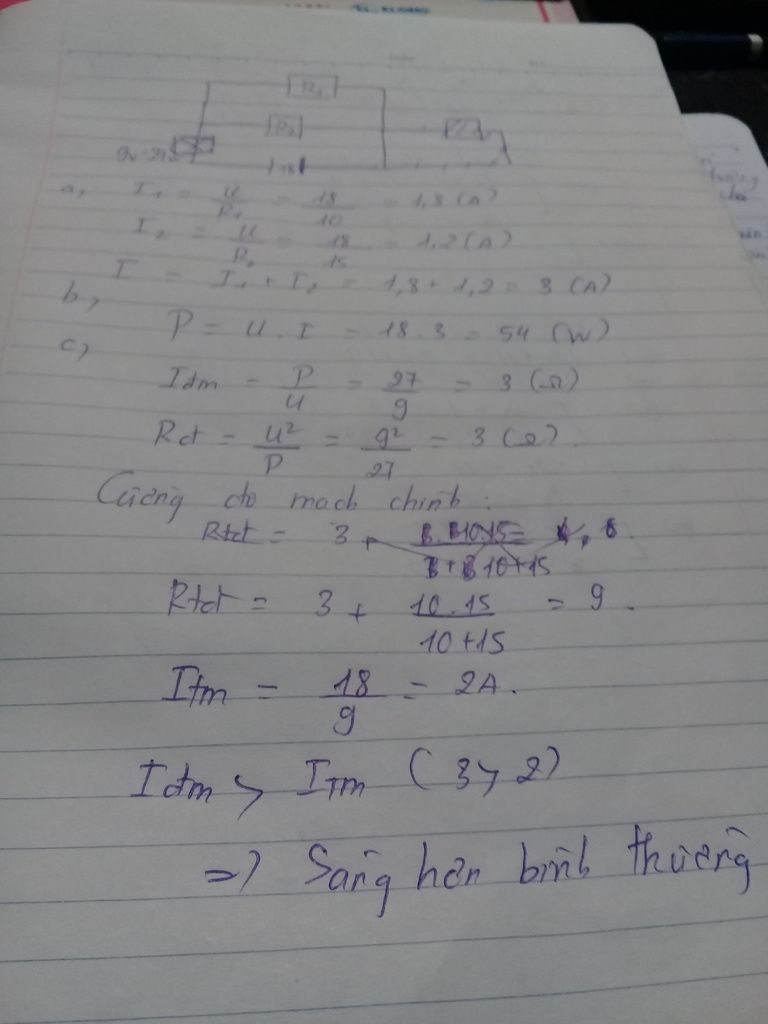 R₁
R₂
18
9V-27W
a, I₁ = U/R₁ = 18/10 = 1,8 (A)
I₂ = U/R₂ = 18/15 = 1,2 (A)
I = I₁ + I₂ = 1,8 + 1,2 = 3 (A)
b, P = U.I = 18.3 = 54 (W)
c,
Idm = P/U = 27/9 = 3 (Ω)
Rđ = U²/P = 9²/27 = 3 (Ω).
Cường độ mạch chính:
Rtđ = 3 +
Rtđ = 3 + 10.15/10+15 = 9.
Itm = 18/9 = 2A.
Iđm > ITm (3 > 2)
=> Sáng hơn bình thường